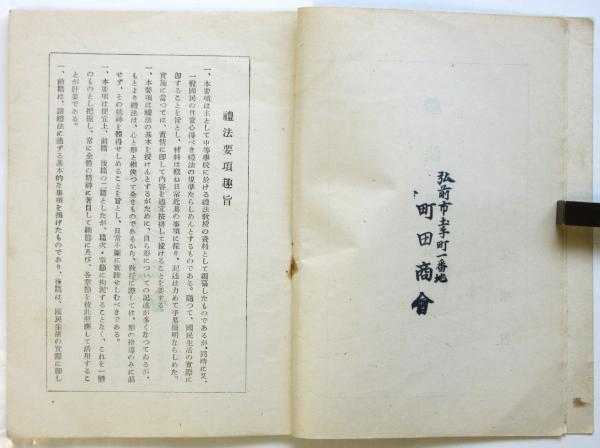 弘前市玉子町一番地
町田商會
禮法要項趣旨
一、本要項は主として中等學校に於ける禮法敎授の資料として編纂したものであるが、同時に又、
一般國民の日常心得べき禮法の規準たらしめんとするものである。隨つて、國民生活の實際に
卽することを旨とし、材料は概ね日常近易の事項に採り、記述は力めて平易簡明ならしめた。
實施に當つては、實情に卽して內容を適宜按排して授けることを要する。
一、本要項は禮法の基本を授けんとするがために、自ら形についての記述が多くなつてゐるが、
もとより禮法は、心と形と相俟つて全きものであるから、敎授に際しては、形の指導のみに偏
せず、その精神を體得せしめることを旨とし、日常不斷に實踐せしむべきである。
一、本要項は便宜上、前篇、後篇の二篇としたが、篇次・章節に拘泥することなく、これを一體
のものとし把握し、常に全體の精神に著眼して細部に及び、各章節を彼此照應して活用するこ
とが肝要である。
一、前篇は、諸禮法に通ずる基本的な事項を揭げたものであり、後篇は、國民生活の實際に卽し